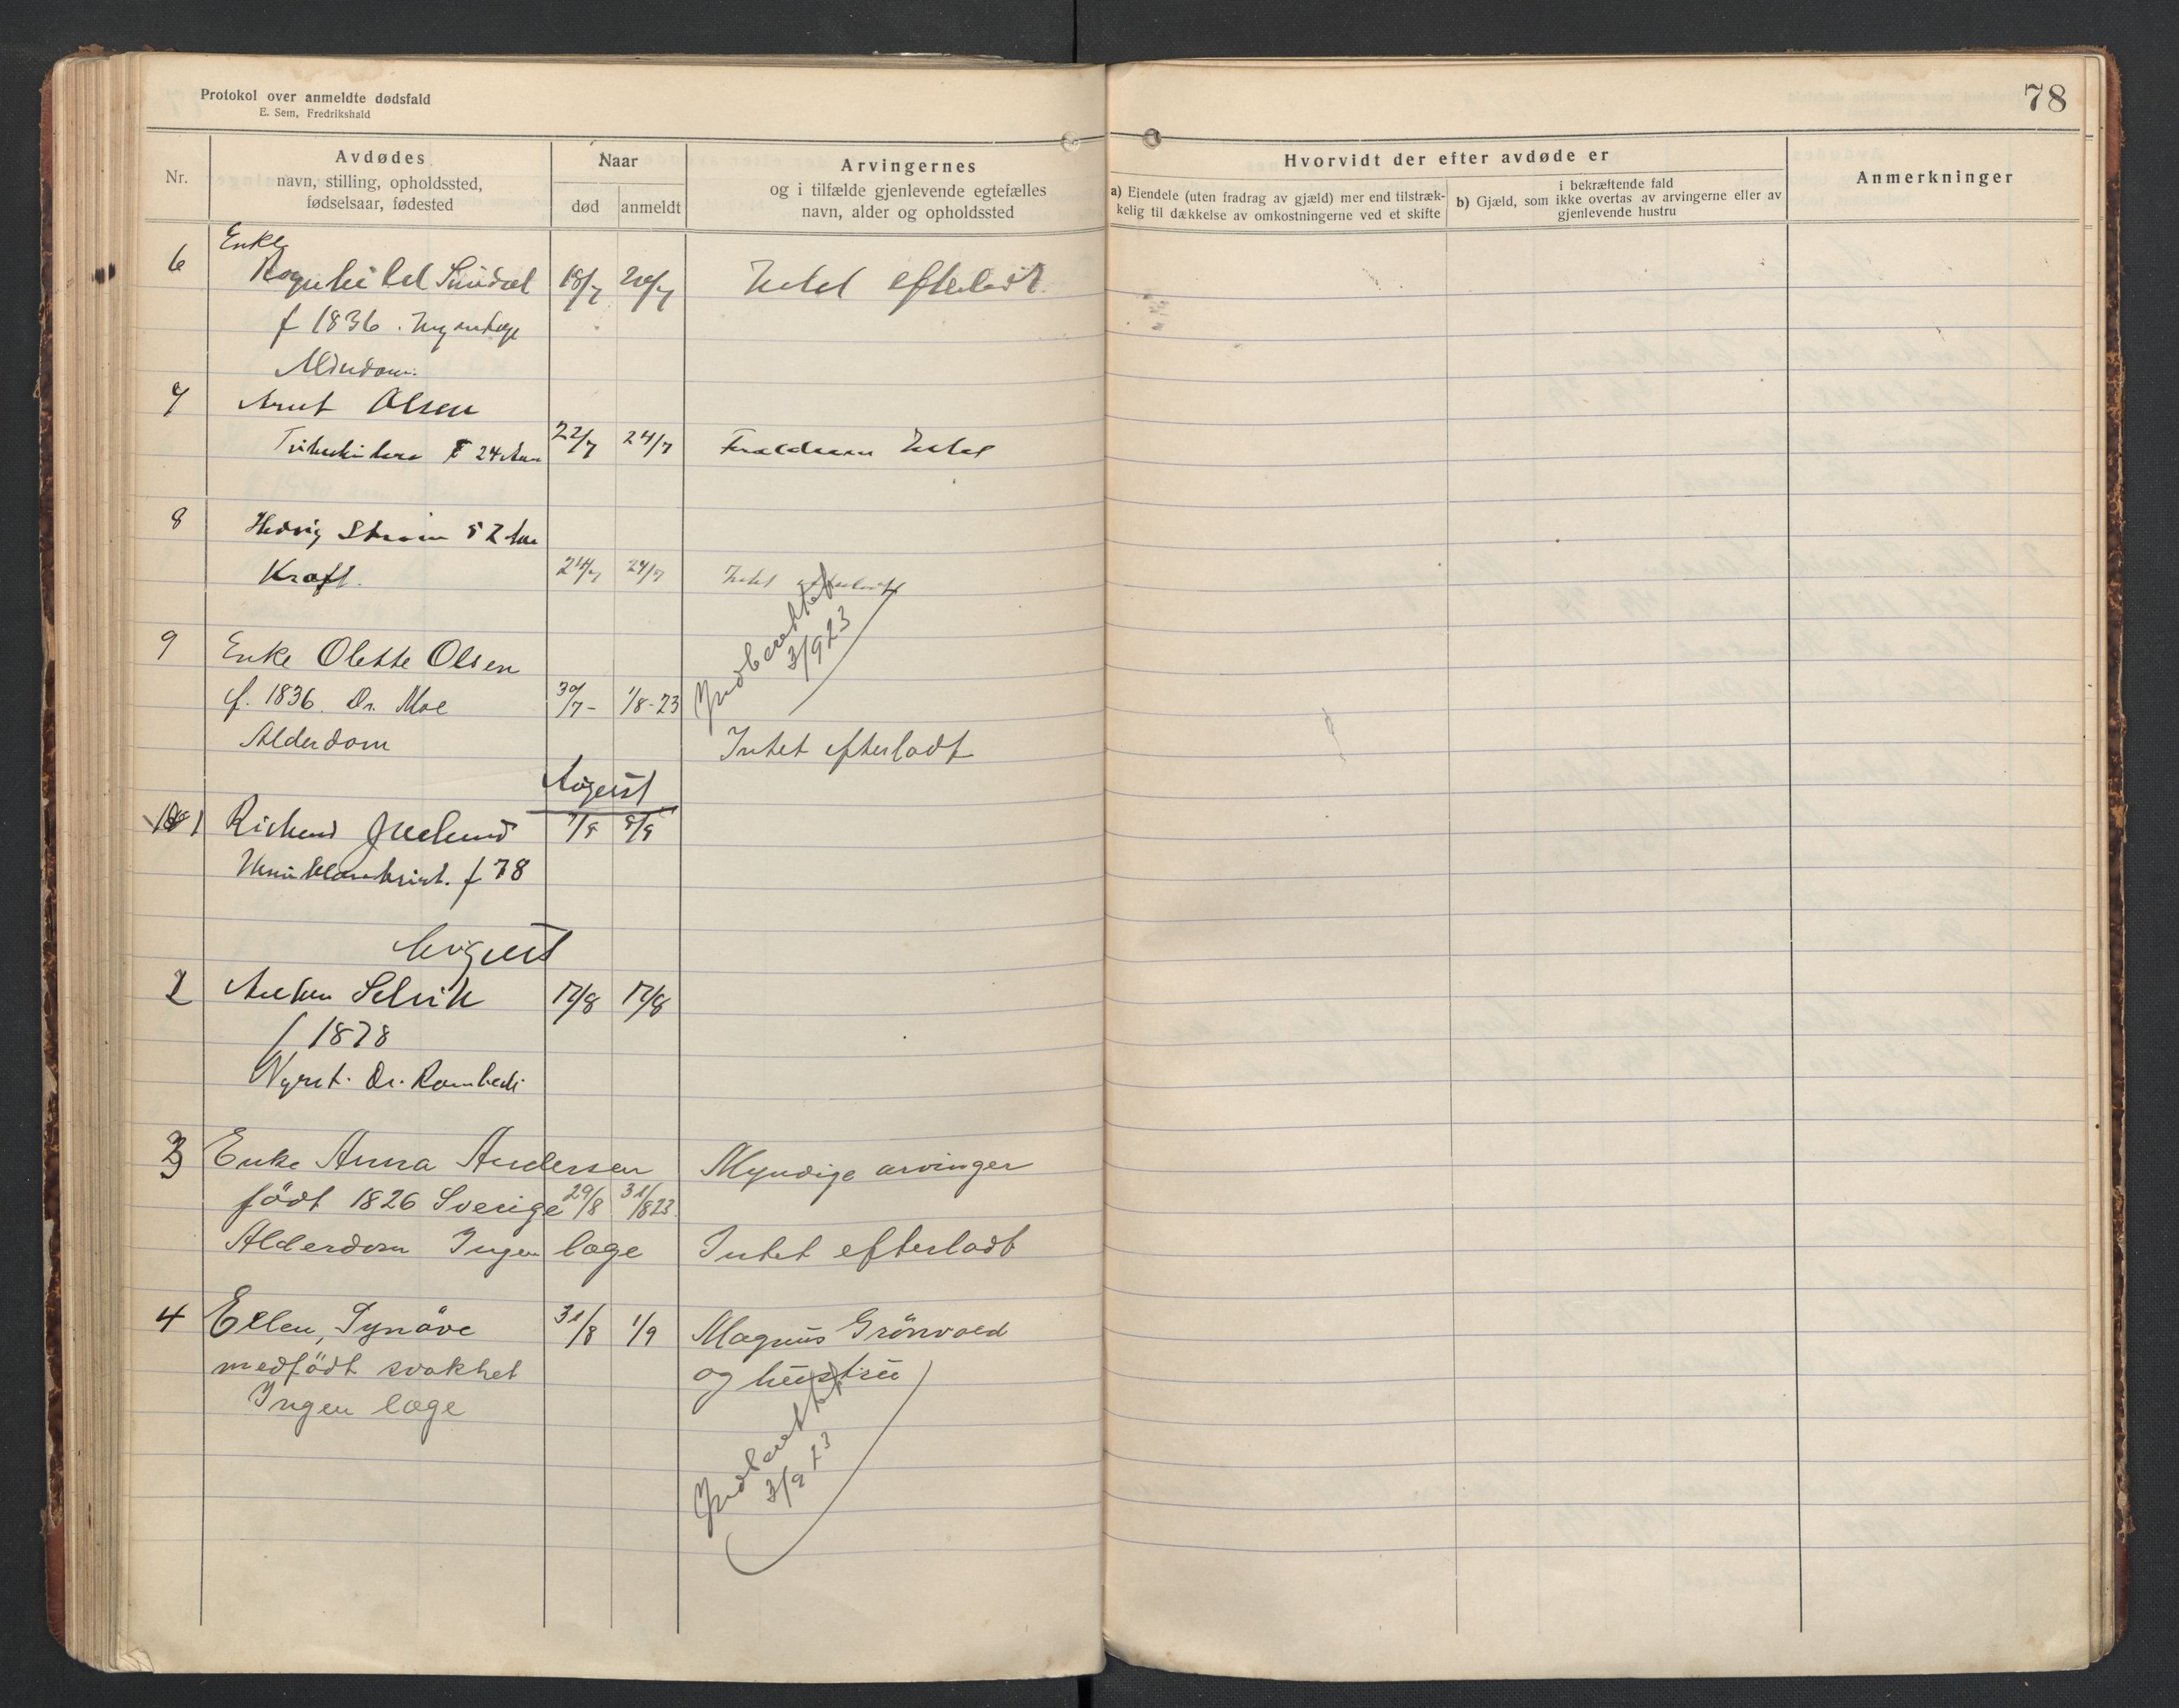 Protokol over anmeldte dødsfald
E. Sem, Fredrikshald
78
Nr.
Avdødes
navn, stilling, opholdssted,
fødselsaar, fødested
Naar
død
anmeldt
Arvingernes
og i tilfælde gjenlevende egtefælles
navn, alder og opholdssted
Hvorvidt der efter avdøde er
a) Eiendele (uten fradrag av gjæld) mer end tilstræk-
kelig til dækkelse av omkostningerne ved et skifte
i bekræftende fald
b) Gjæld, som ikke overtas av arvingerne eller av
gjenlevende hustru
Anmerkninger
Enke
6 18/7 20/7 Intet efterladt
f 1836.
7 Arnt Olsen
24 22/7 24/7 Intet
8 Hedvig 52
Kraft. 24/7 24/7 Intet efterladt
Indberettet
3/9 23
9 Enke Olette Olsen
f. 1836. Dr. Moe 30/7- 1/8-23
Alderdom Intet efterladt
August
1 Richard 7/8 8/8
f 78
August
2 Selvik 17/8 17/8
f 1878
Dr.
3 Enke Anna Andersen Myndige arvinger
födt 1826 Sverige 29/8 31/8 23
Alderdom Ingen læge Intet efterladt
4 Ellen, Synöve 31/8 1/9 Magnus Grönvold
medfödt svakhet og hustru
Ingen læge
Indberettet
3/9 23